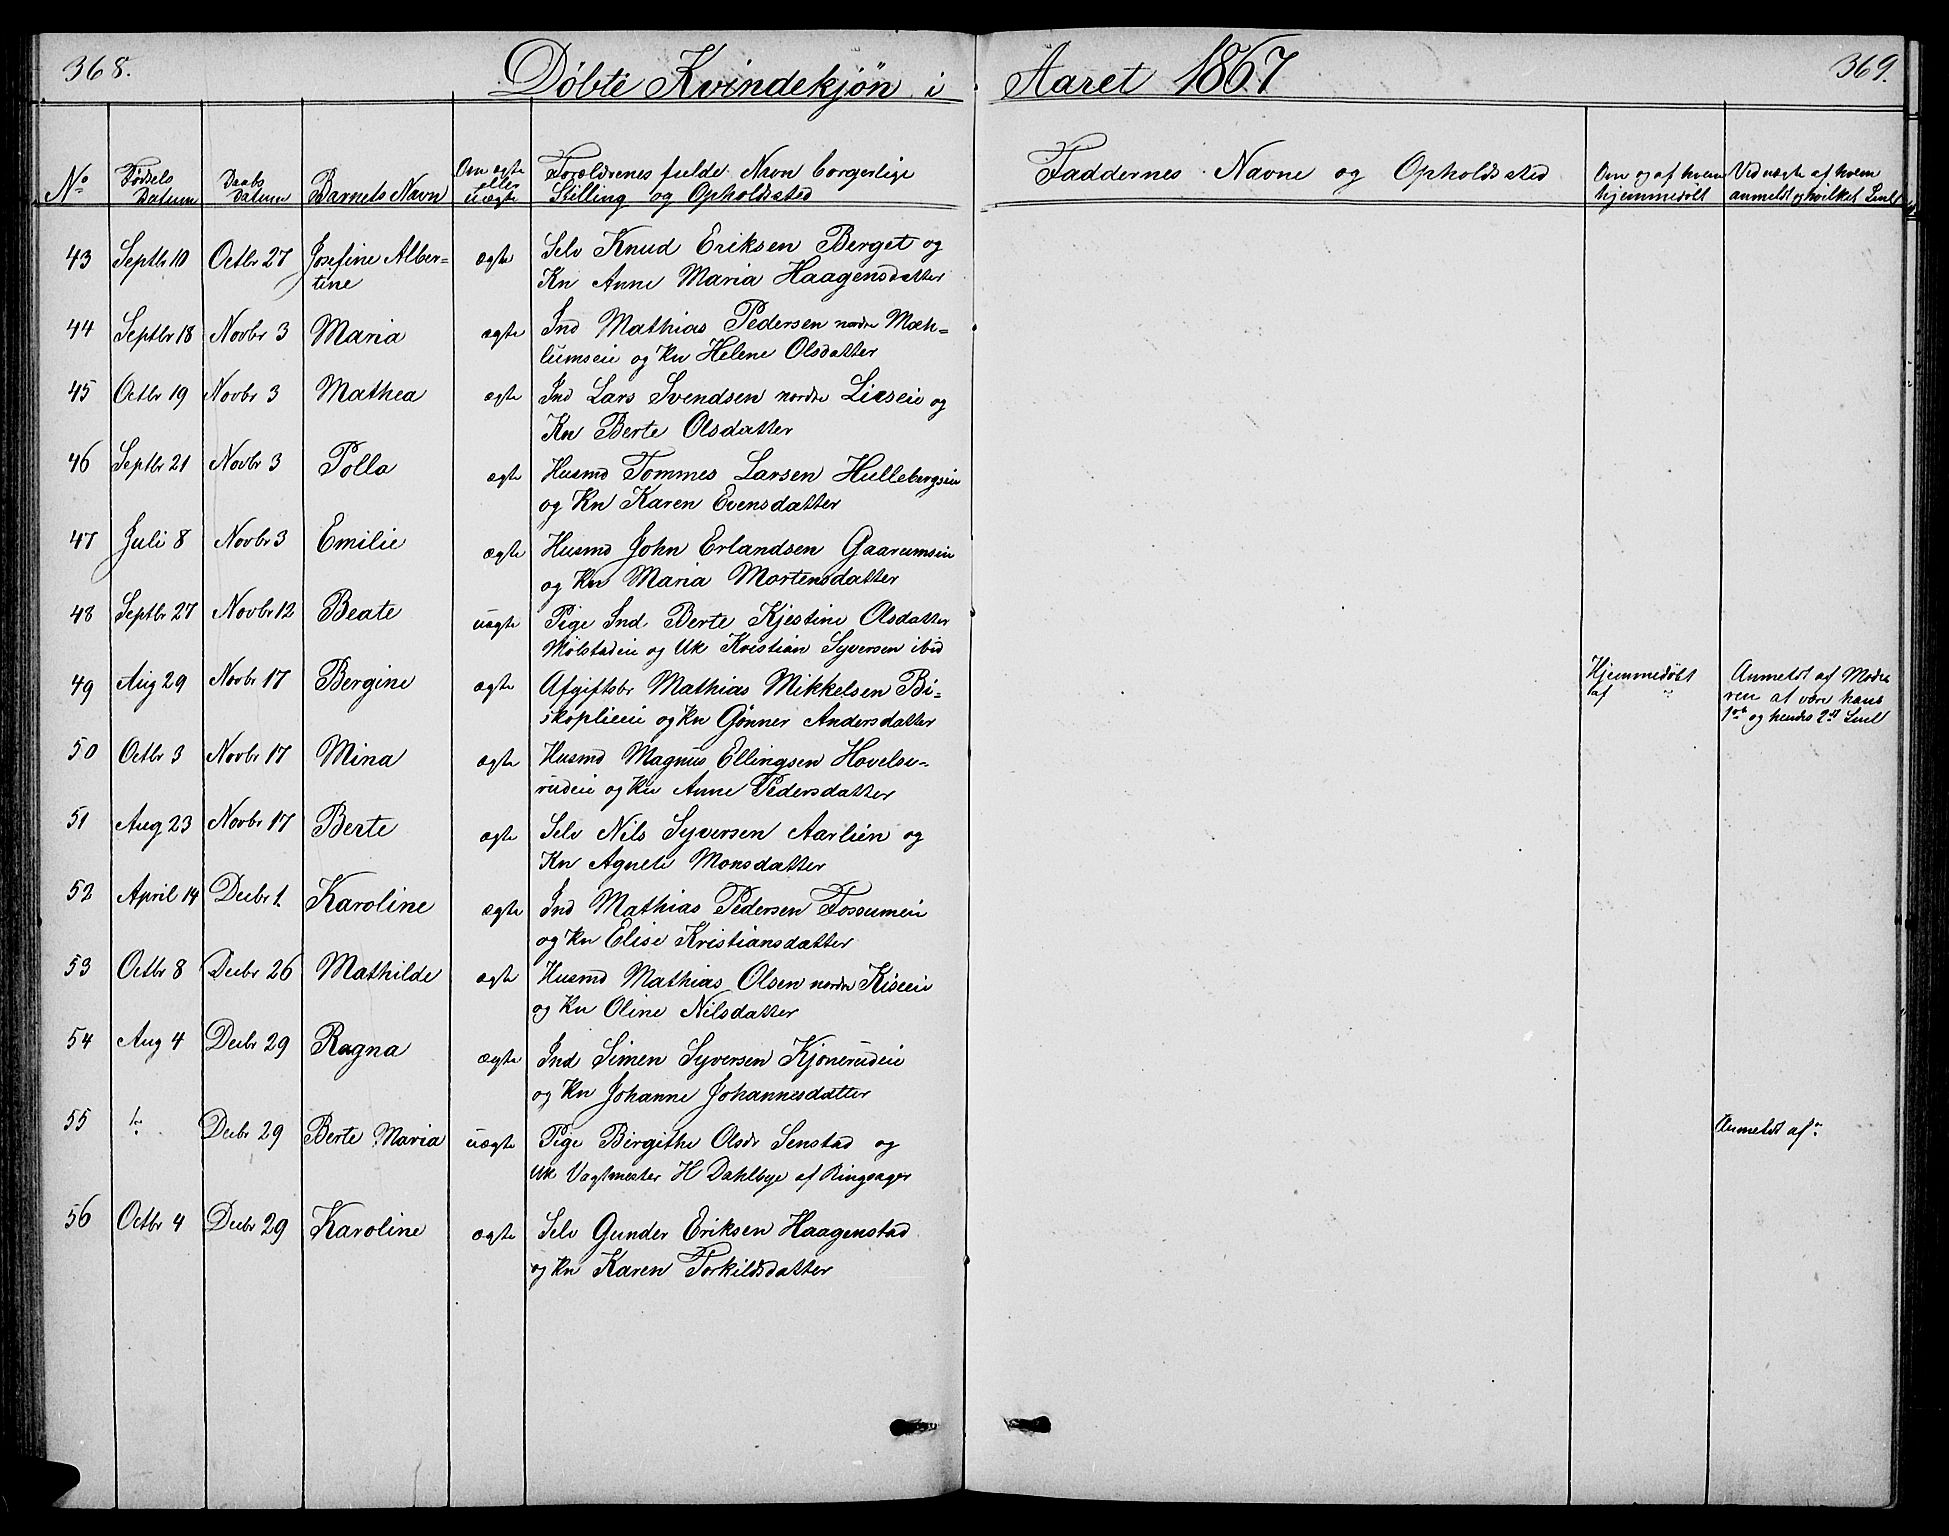 368.
Døbte Kvindekjøn i Aaret 1867
369.
No
Fødsels Datum
Daabs Datum
Barnets Navn
Om ægte eller uægte
Forældrenes fulde Navn borgerlige
Stilling og Opholdssted
Faddernes Navne og Opholdssted
Om og af hvem
hjemmedøbt
Ved uægte af hvem
anmeldt og hvilket Leul
43 Septbr 10 Octbr 27 Josefine Alber- ægte Selv Knud Eriksen Berget og
tine Kn Anne Maria Haagensdatter
44 Septbr 18 Novbr 3 Maria ægte Ind Mathias Pedersen nordre Mæh-
lumseie og Kn Helene Olsdatter
45 Octbr 19 Novbr 3 Mathea ægte Ind Lars Svendsen nordre Lieseie og
Kn Berte Olsdatter
46 Septbr 21 Novbr 3 Polla ægte Husmd Tommes Larsen Hullebergseie
og Kn Karen Evensdatter
47 Juli 8 Novbr 3 Emilie ægte Husmd John Erlandsen Gaarumseie
og Kn Maria Mortensdatter
48 Septbr 27 Novbr 12 Beate uægte Pige Ind Berte Kjestine Olsdatter
Mølstadeie og Uk Kristian Syversen ibid
49 Aug 29 Novbr 17 Bergine ægte Afgiftsbr Mathias Mikkelsen Bi- Hjemmedøbt Anmeldt af Mode
skoplieeie og Kn Gønner Andersdatter af " ren at være hans
1ste og hendes 2det Leul
50 Octbr 3 Novbr 17 Mina ægte Husmd Magnus Ellingsen Hovels-
rudeie og Kn Anne Pedersdatter
51 Aug 23 Novbr 17 Berte ægte Selv Nils Syversen Aarlien og
Kn Agnete Monsdatter
52 April 14 Decbr 1. Karoline ægte Ind Mathias Pedersen Fossumeie
og Kn Elise Kristiansdatter
53 Octbr 8 Decbr 26 Mathilde ægte Husmd Mathias Olsen nordre Kiseeie
og Kn Oline Nilsdatter
54 Aug 4 Decbr 29 Ragna ægte Ind Simen Syversen Kjonerudeie
og Kn Johanne Johannesdatter
55 Decbr 29 Berte Maria uægte Pige Birgithe Olsdr Senstad og Anmeldt af
Uk Vagtmester H Dahlbye af Ringsager
56 Octbr 4 Decbr 29 Karoline ægte Selv Gunder Eriksen Haagenstad
og Kn Karen Torkildsdatter